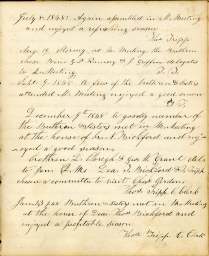 July 8. 1848. Again assembled in Q. Meeting
and enjoyed a refreshing season
Thos Tripp
Aug. 19 Stormy no Q. Meeting the Brethren
chose Bren and J. Griffin delegates
to Q. Meeting T. T.
Sept. 9. 1848. A few of the brethren & sisters
attended Q. Meeting enjoyed a good season
T.
December 9th 1848 a goodly number of
the Brethren & sisters met in Meeting
at the house of Bickford and enj-
oyed a good season
brethren L. Clough & Geo. H. Grant del-
to from Q. Mo Dea T. Bickford & T. Tripp
chosen a committee to visit
Thos Tripp C. Clerk
Brethren & sisters met in Q. Meeting
at the house of Dea Thos Bickford and
enjoyed a profitable season
Thos Tripp C. Clerk